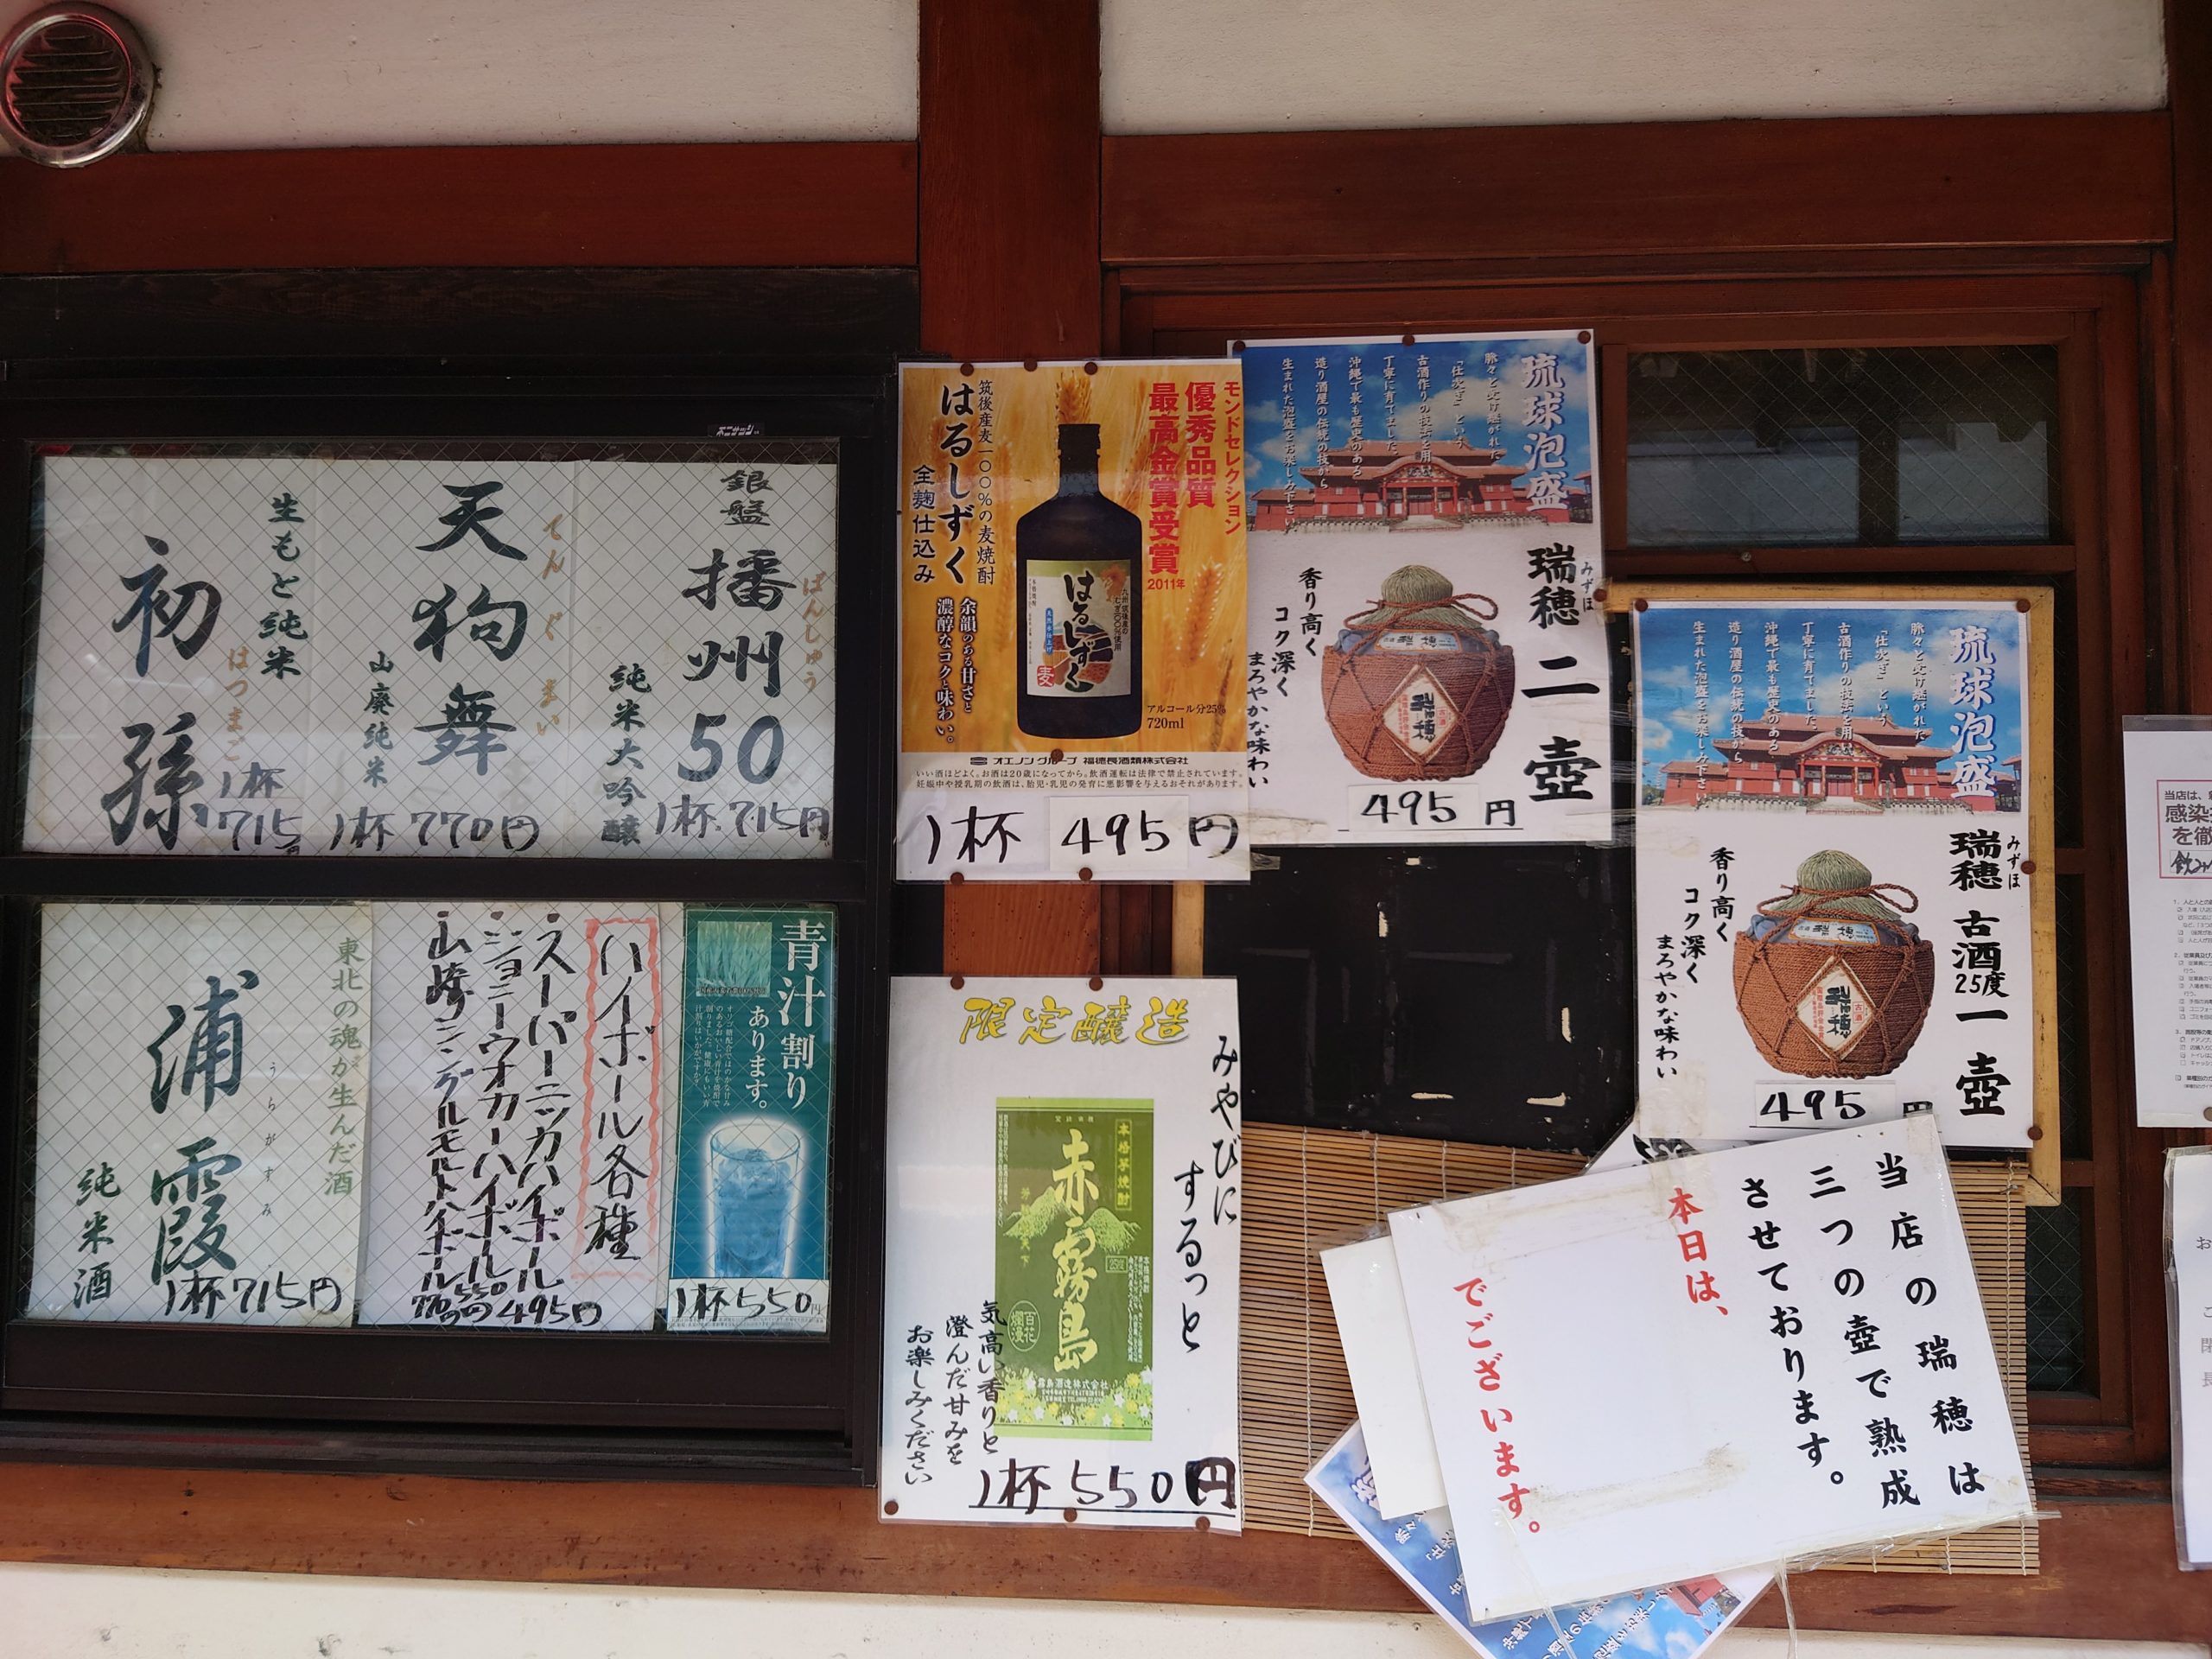 銀盤
播州50
ばんしゅう
純米大吟醸
1杯 715円
天狗舞
てんぐまい
山廃純米
1杯 770円
生もと純米
初孫
はつまご
1杯
715
青汁割り
あります。
1杯 550円
ハイボール各種
スーパーニッカハイボール
ジョニーウォカーハイボール
山崎シングルモルトハイボール
495円
550円
770円
東北の魂が生んだ酒
浦霞
うらがすみ
純米酒
1杯 715円
モンドセレクション
優秀品質
最高金賞受賞
2011年
筑後産麦一〇〇%の麦焼酎
はるしずく
全麹仕込み
余韻のある甘さと
濃醇なコクと味わい。
はるしずく
麦
アルコール分25%
720ml
オエノングループ 福徳長酒類株式会社
いい酒ほどよく。お酒は20歳になってから。飲酒運転は法律で禁止されています。
妊娠中や授乳期の飲酒は、胎児・乳児の発育に悪影響を与えるおそれがあります。
1杯 495円
限定醸造
みやびに
するっと
本格芋焼酎
赤霧島
百花
爛漫
霧島酒造株式会社
気高い香りと
澄んだ甘みを
お楽しみください
1杯 550円
琉球泡盛
脈々と受け継がれた
「仕次ぎ」という
古酒作りの技法を用い
丁寧に育てました。
沖縄で最も歴史のある
造り酒屋の伝統の技から
生まれた泡盛をお楽しみ下さい
瑞穂 二壺
みずほ
香り高く
コク深く
まろやかな味わい
瑞穂
495 円
琉球泡盛
脈々と受け継がれた
「仕次ぎ」という
古酒作りの技法を用い
丁寧に育てました。
沖縄で最も歴史のある
造り酒屋の伝統の技から
生まれた泡盛をお楽しみ下さい
瑞穂 古酒25度 一壺
みずほ
香り高く
コク深く
まろやかな味わい
瑞穂
495 円
当店の瑞穂は
三つの壺で熟成
させております。
本日は、
でございます。
当店は、
感染
を徹